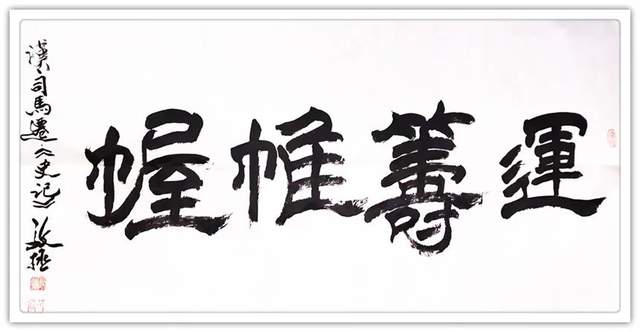 運籌帷幄
漢司馬遷《史記》